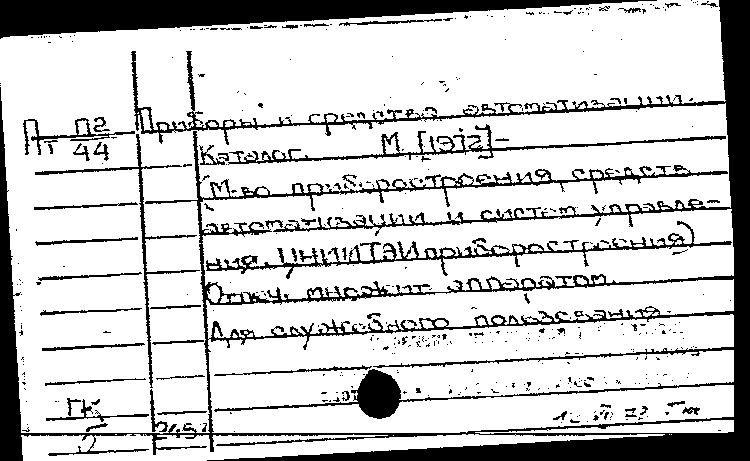 Пт П2/44 Приборы и средства автоматизации.
Каталог. М, [1972]-
(М-во приборостроения, средств
автоматизации и систем управле-
ния. ЦНИИТЭИприборостроения)
Отпеч. множит. аппаратом.
Для служебного пользования.